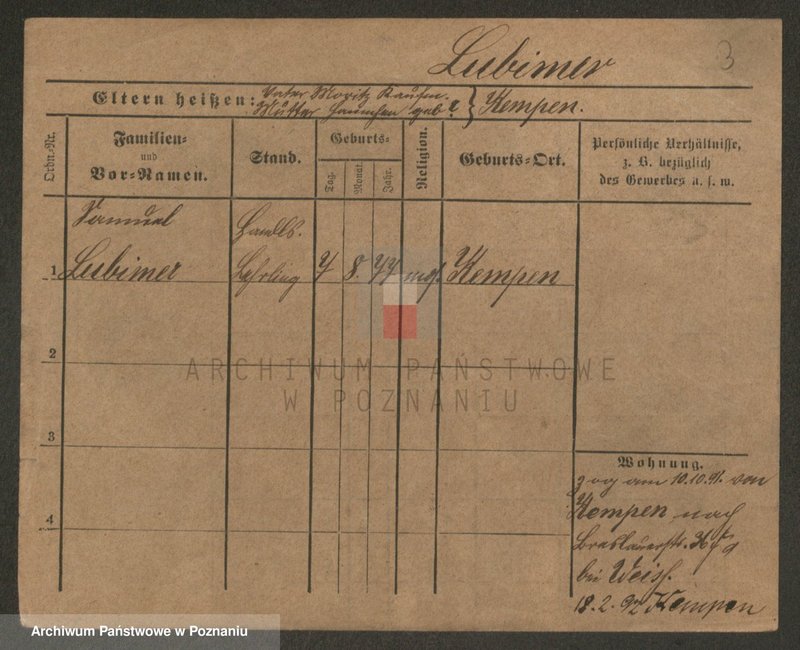 Lubimer
3
Eltern heißen: Vater Moritz
Mutter geb. ? } Kempen.
Ordn.-Nr.
Familien-
und
Vor-Namen.
Stand.
Geburts-
Tag.
Monat.
Jahr.
Religion.
Geburts-Ort.
Persönliche Verhältnisse,
z. B. bezüglich
des Gewerbes u. s. w.
Samuel
Handls.
1 Lubimer Lehrling 7 8. 77 mos. Kempen
2
3
4
Wohnung.
zog am 10.10.91. von
Kempen nach
Breslauerstr.
bei Weiss.
18.2.92 Kempen
ARCHIWUM PAŃSTWOWE
W POZNANIU
Archiwum Państwowe w Poznaniu